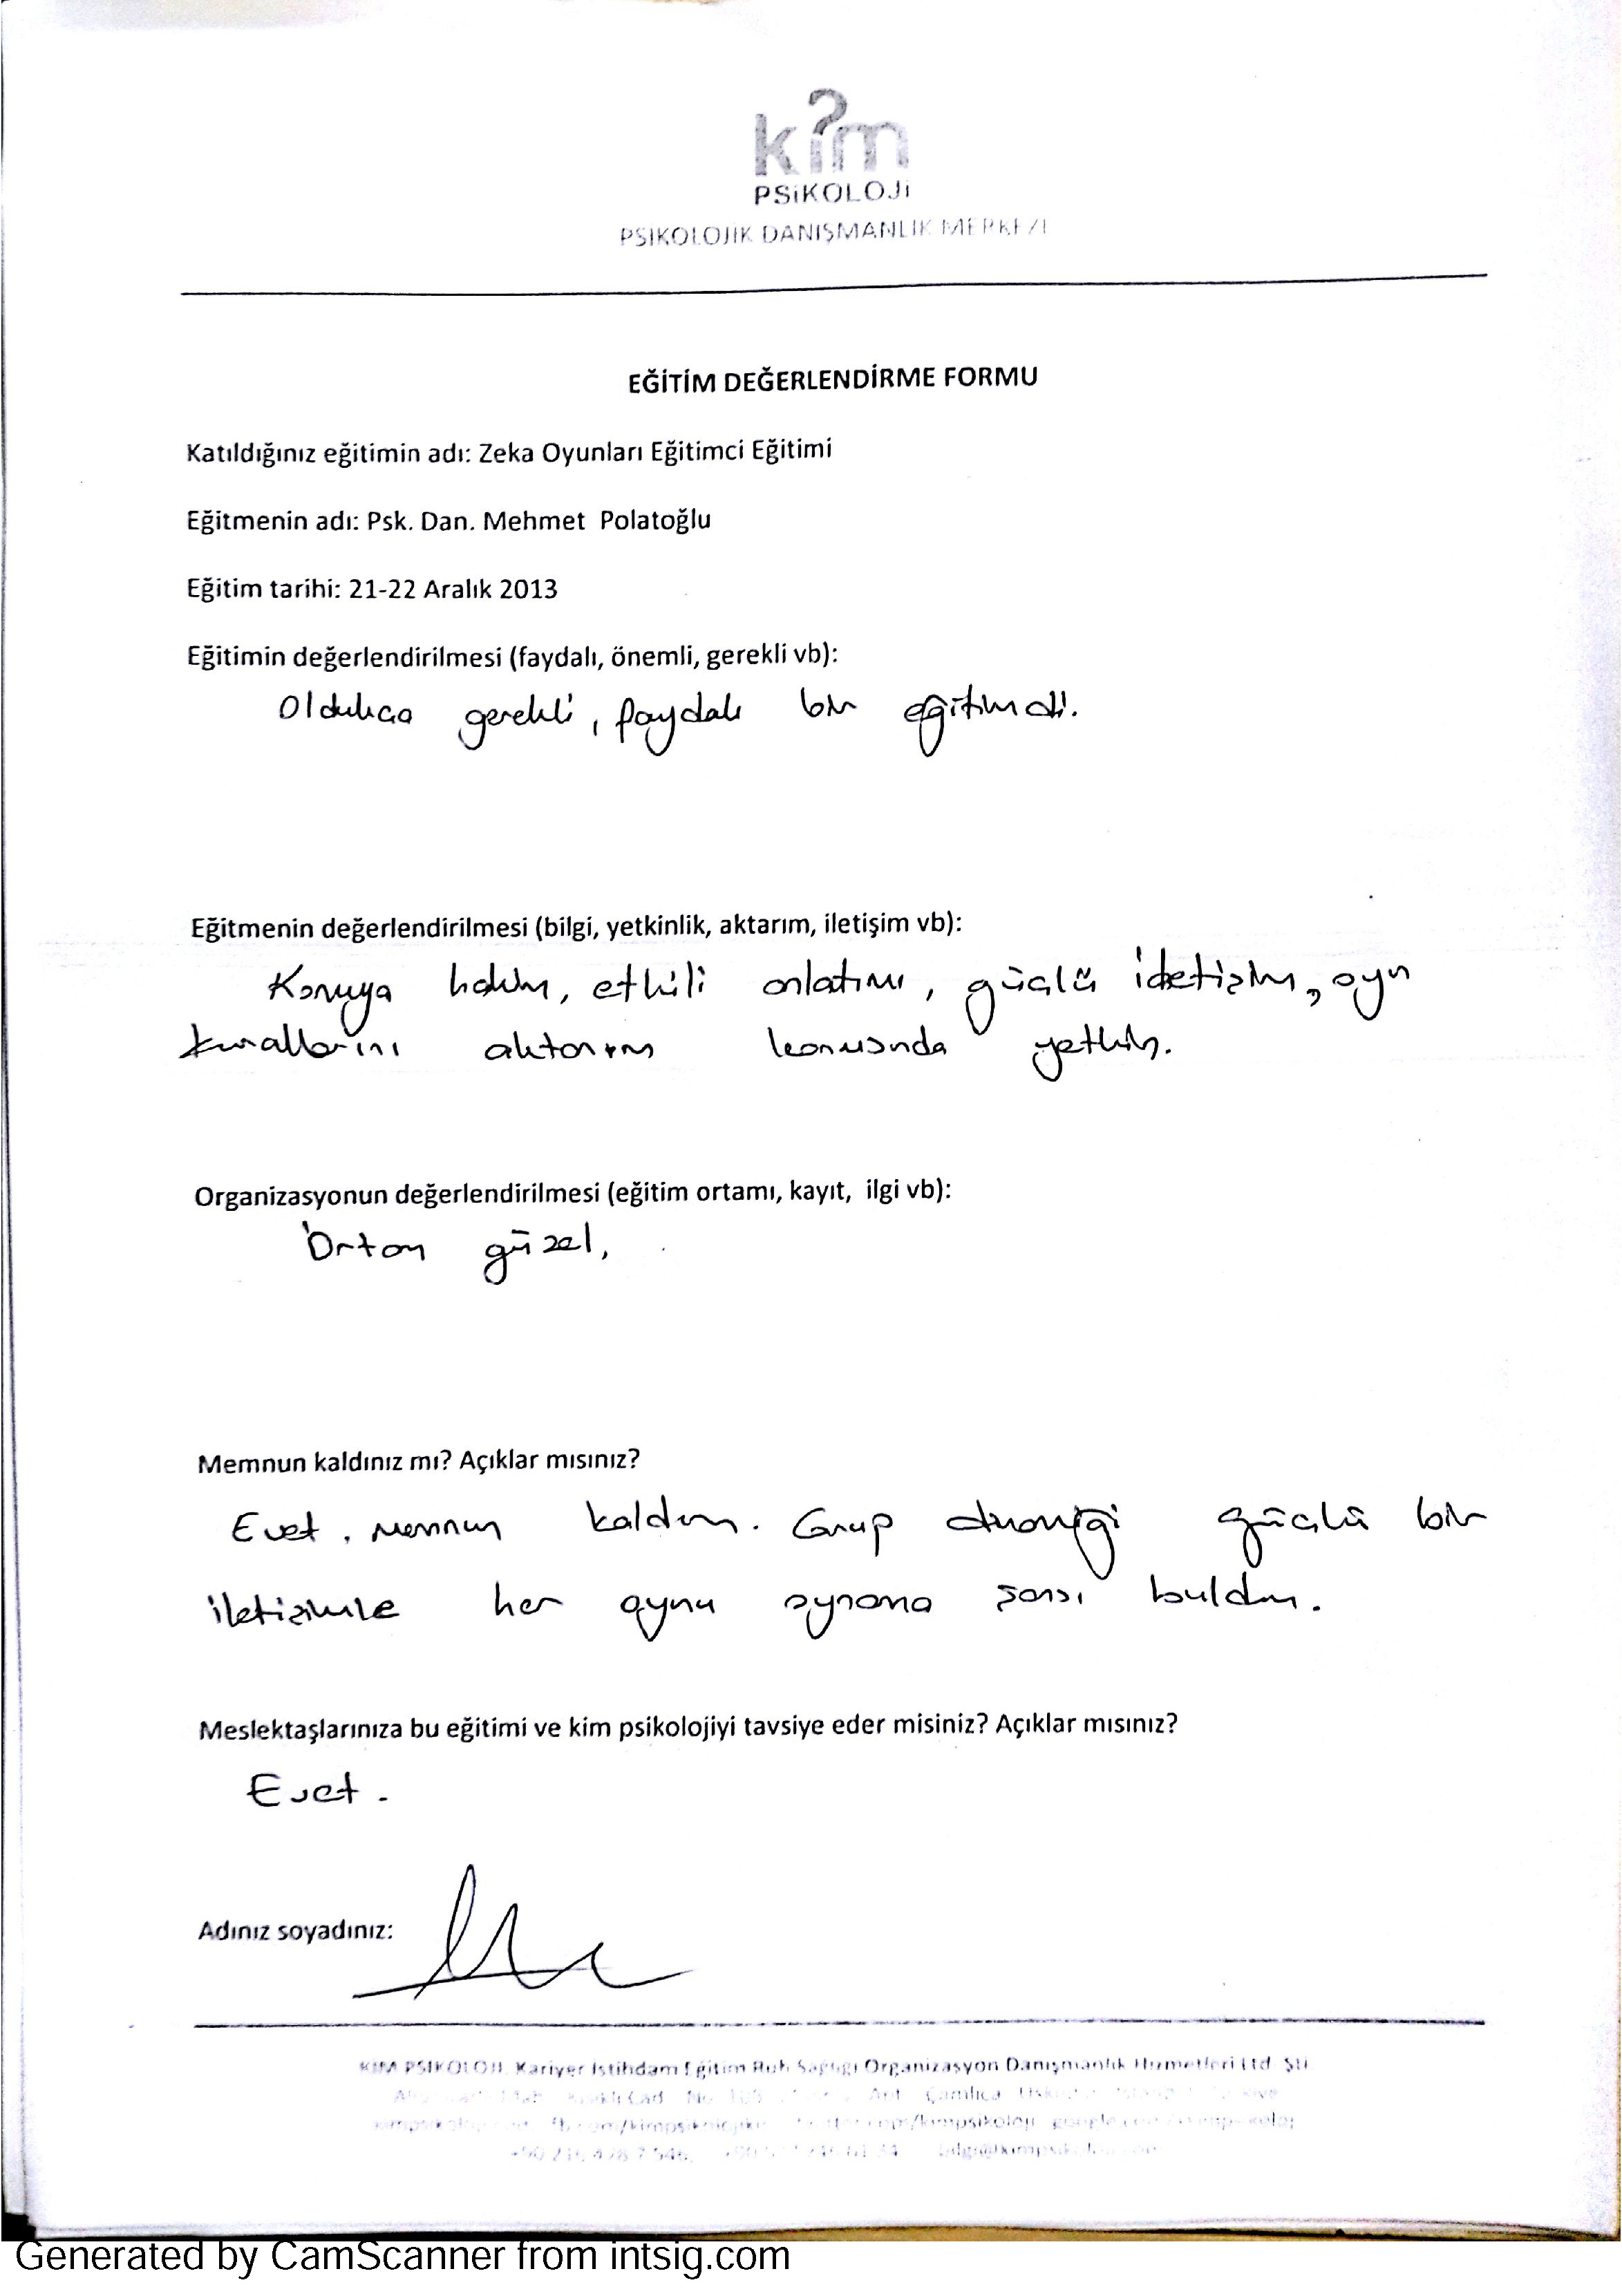 kim
PSiKOLOJi
PSİKOLOJİK DANIŞMANLIK MERKEZİ
EĞİTİM DEĞERLENDİRME FORMU
Katıldığınız eğitimin adı: Zeka Oyunları Eğitimci Eğitimi
Eğitmenin adı: Psk. Dan. Mehmet Polatoğlu
Eğitim tarihi: 21-22 Aralık 2013
Eğitimin değerlendirilmesi (faydalı, önemli, gerekli vb):
Oldukça gerekli, faydalı bir eğitimdi.
Eğitmenin değerlendirilmesi (bilgi, yetkinlik, aktarım, iletişim vb):
Konuya hakim, etkili anlatımı, güçlü iletişim, oyun
kurallarını aktarım konusunda yetkin.
Organizasyonun değerlendirilmesi (eğitim ortamı, kayıt, ilgi vb):
Ortam güzel.
Memnun kaldınız mı? Açıklar mısınız?
Evet, memnun kaldım. Grup güçlü bir
iletişimle her oyunu oynama şansı buldum.
Meslektaşlarınıza bu eğitimi ve kim psikolojiyi tavsiye eder misiniz? Açıklar mısınız?
Evet.
Adınız soyadınız:
KİM PSİKOLOJİ Kariyer İstihdam Eğitim Ruh Sağlığı Organizasyon Danışmanlık Hizmetleri Ltd Şti
Çamlıca
Generated by CamScanner from intsig.com